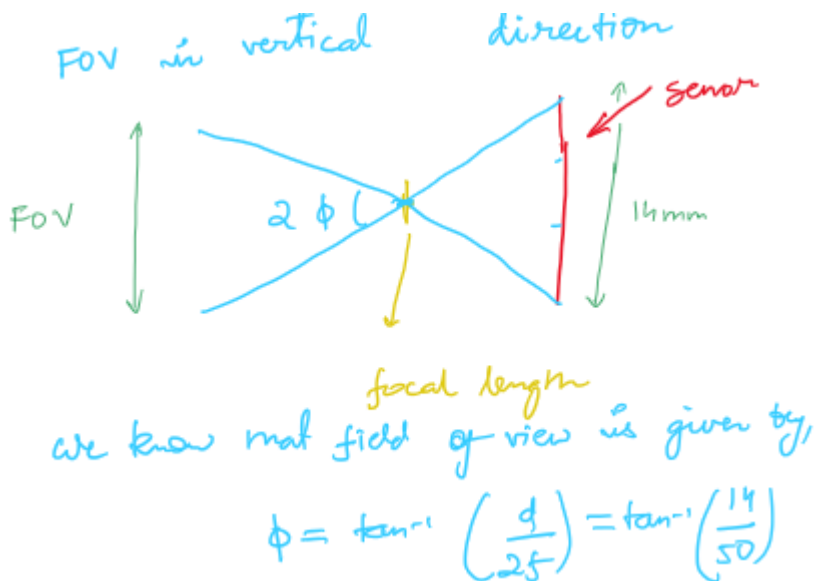 FOV in vertical direction
senor
FOV
2 ϕ
14mm
focal length
we know that field of view is given by,
ϕ = tan⁻¹ (d/25) = tan⁻¹ (14/50)